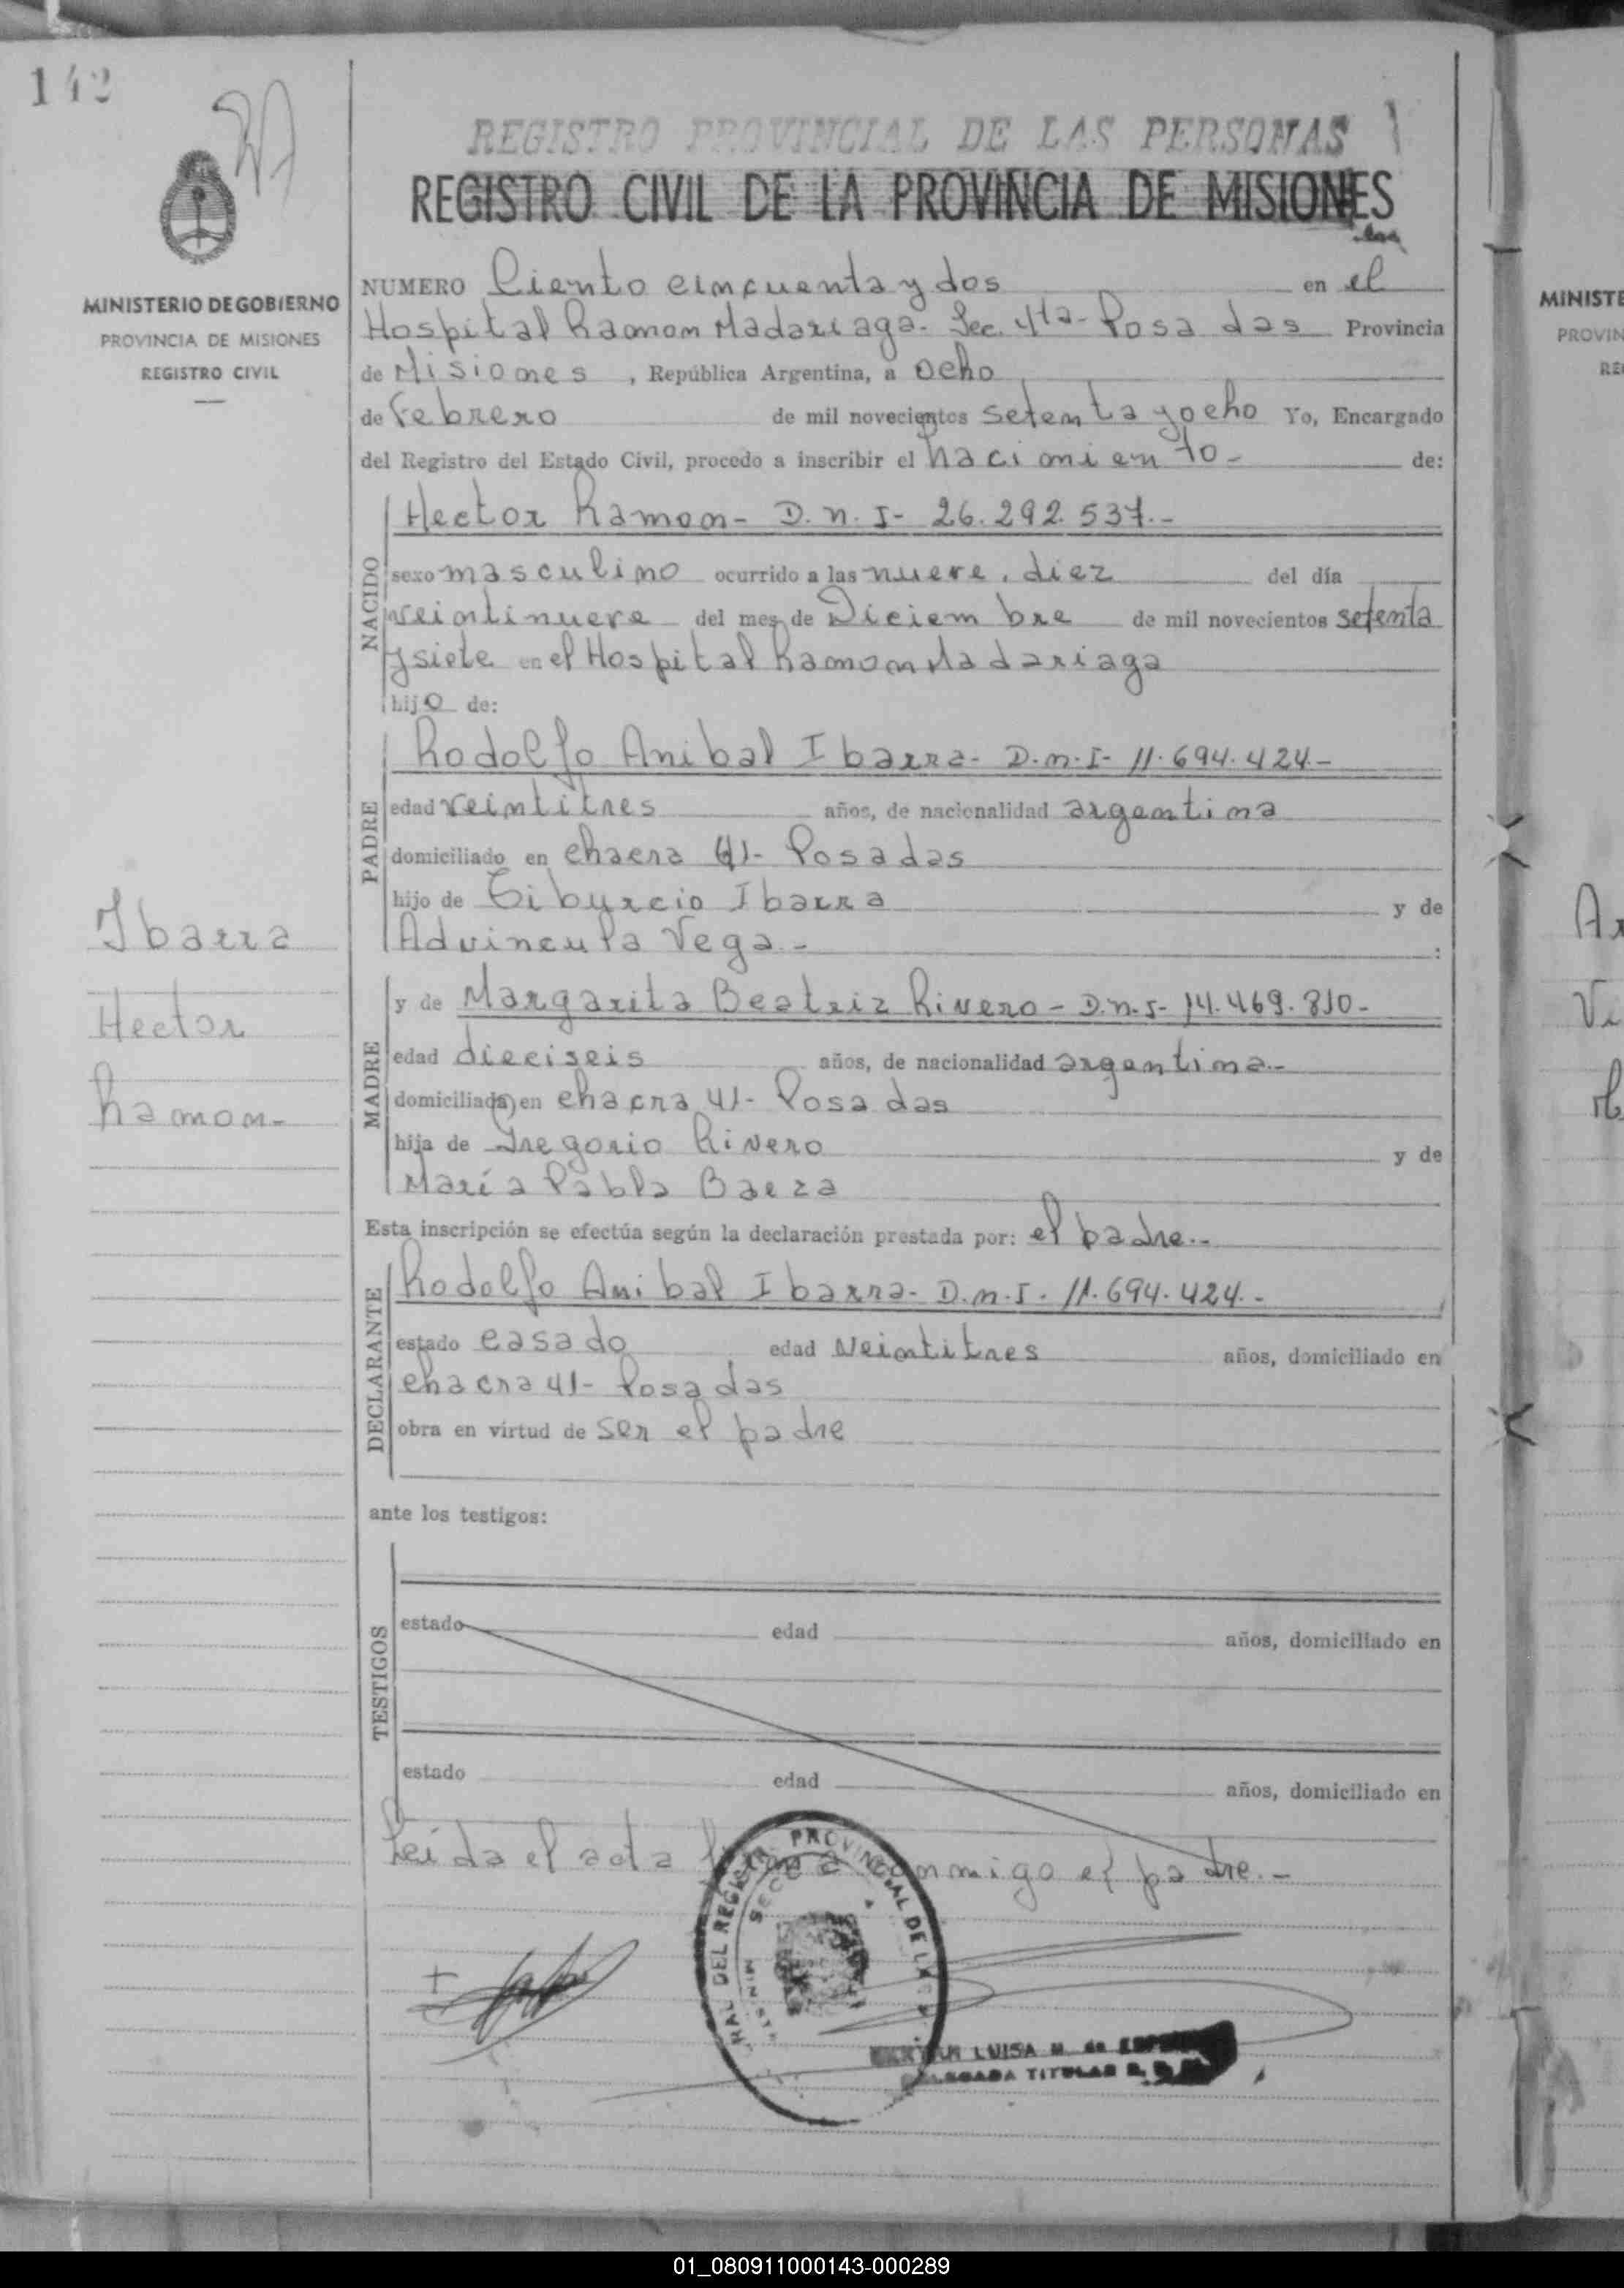 142
REGISTRO PROVINCIAL DE LAS PERSONAS
REGISTRO CIVIL DE LA PROVINCIA DE MISIONES
MINISTERIO DE GOBIERNO
PROVINCIA DE MISIONES
REGISTRO CIVIL
NUMERO Ciento cincuenta y dos en el
Hospital Ramon Madariaga- Sec. 4ta- Posadas Provincia
de Misiones, República Argentina, a ocho
de Febrero de mil novecientos setenta y ocho Yo, Encargado
del Registro del Estado Civil, procedo a inscribir el nacimiento- de:
NACIDO
Hector Ramon- D.n.I- 26.292.537.-
sexo masculino ocurrido a las nueve, diez del día
veintinueve del mes de Diciembre de mil novecientos setenta
y siete en el Hospital Ramon Madariaga
hijo de:
PADRE
Rodolfo Anibal Ibarra- D.n.I- 11.694.424-
edad veintitres años, de nacionalidad argentina
domiciliado en chacra 41- Posadas
hijo de Tiburcio Ibarra y de
Advincula Vega.- :
Ibarra
Hector
Ramon-
MADRE
y de Margarita Beatriz Rivero- D.n.I- 14.469.810-
edad dieciseis años, de nacionalidad argentina.-
domiciliad(a) en chacra 41- Posadas
hija de Gregorio Rivero y de
María Pabla Baeza
Esta inscripción se efectúa según la declaración prestada por: el padre.-
DECLARANTE
Rodolfo Anibal Ibarra- D.n.I. 11.694.424.-
estado casado edad veintitres años, domiciliado en
chacra 41- Posadas
obra en virtud de ser el padre
ante los testigos:
TESTIGOS
estado edad años, domiciliado en
estado edad años, domiciliado en
Leida el acta firma conmigo el padre.-
PROVINCIAL DE LA
DEL REGISTR
SECC
MINISTE
LUISA M. de
TITULAR
MINISTE
PROVIN
RE
Ar
Vi
01_080911000143-000289